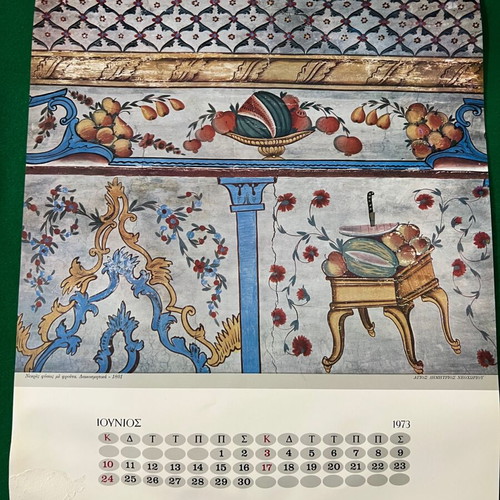 Νεκρὲς φύσεις μὲ φροῦτα. Διακοσμητικά
ΑΓΙΟΣ ΔΗΜΗΤΡΙΟΣ ΝΕΟΧΩΡΙΟΥ
ΙΟΥΝΙΟΣ 1973
Κ Δ Τ Τ Π Π Σ Κ Δ Τ Τ Π Π Σ
1 2 3 4 5 6 7 8 9
10 11 12 13 14 15 16 17 18 19 20 21 22 23
24 25 26 27 28 29 30